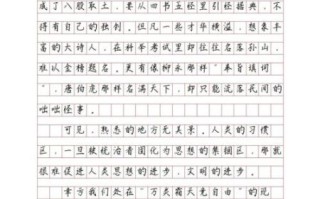 成了八股取士，要从四书五经里引经据典，不
得有自己的独创。但凡一些才华横溢，想象丰
富的大诗人，在科举考试里却往往名落孙山，
难以金榜题名。更有像柳永那样“奉旨填词
”，唐伯虎那样名满天下，却只能流落民间的
咄咄怪事。
可见，熟悉的地方无美景。人类的习惯
区，一旦被统治者固化为思想的禁锢区，那就
很难促进人类思想的进步，文明的进步。
幸亏我们处在“万类霜天竞自由”的